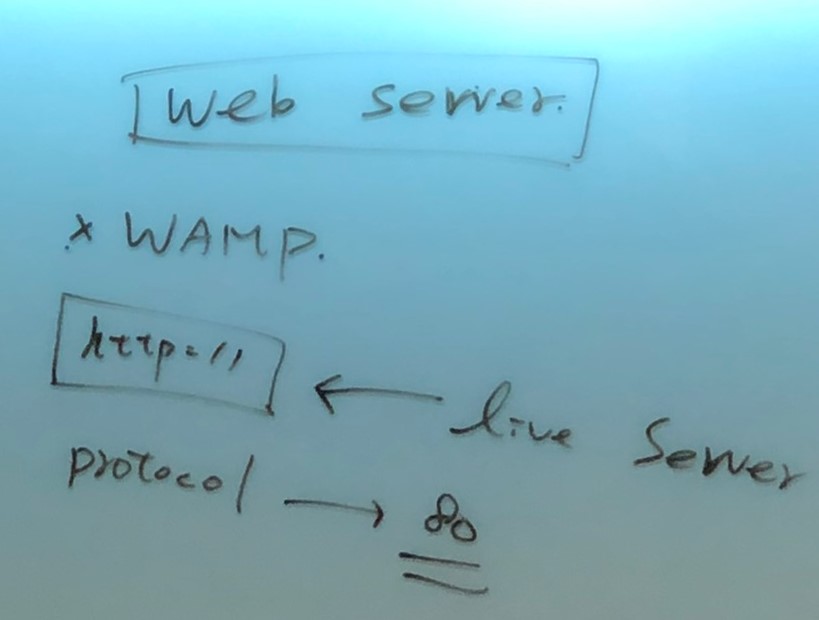 Web server.
* WAMP.
http://
← live Server
protocol → 80